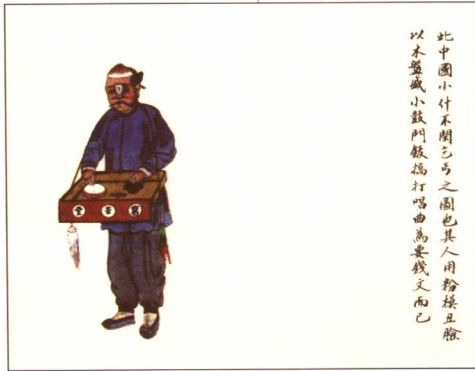 此中國小什不閑乞丐之圖也其人用粉模丑臉
以木盤盛小鼓門鈸搞打唱曲為要錢文而已